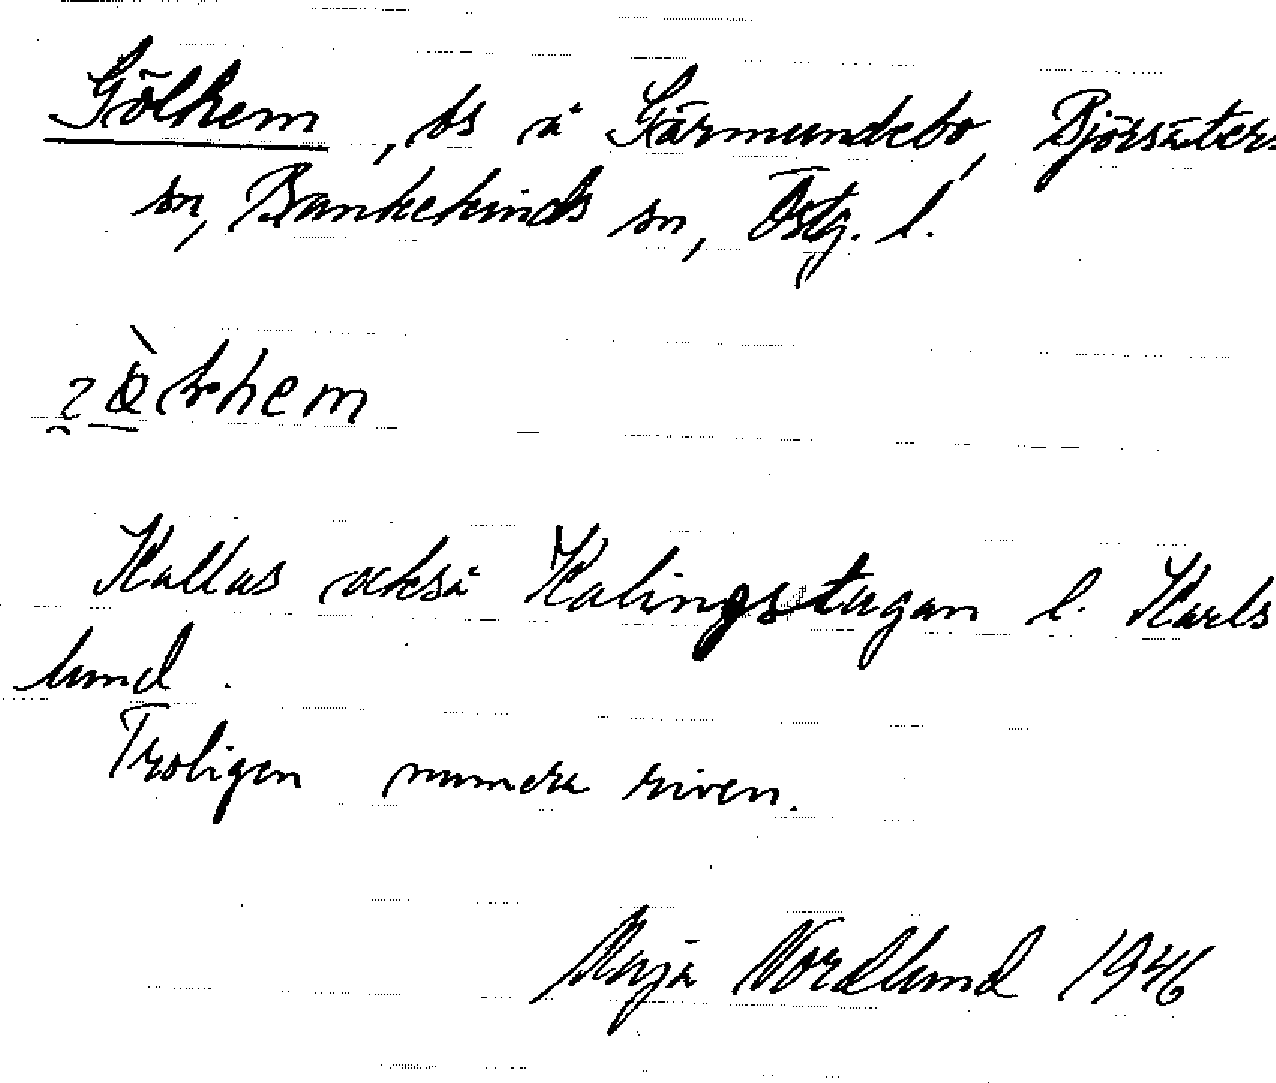 Gölhem, ds å Gärmundebo, Björsäters
sn, Bankekinds sn, Östg. l.
Kallas också Kalingstugan l. Karls
lund.
Troligen numera riven.
Maja Nordlund 1946